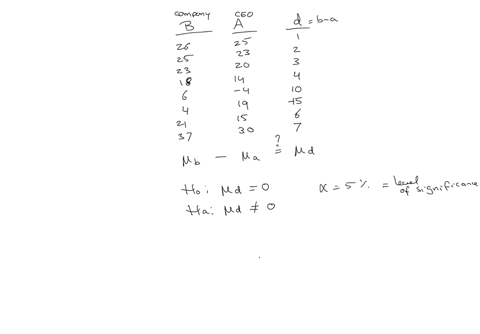 company CEO
B A d = b-a
26 25 1
25 23 2
23 20 3
18 14 4
6 -4 10
4 19 -15
21 15 6
37 30 7
?
μb - μa = μd
Ho: μd = 0 α = 5% = level of significance
Ha: μd ≠ 0